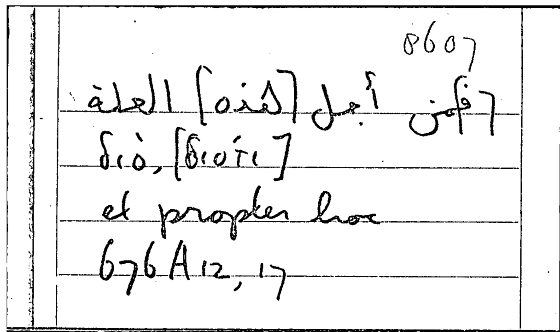 8607
فمن أجل [هذه] العلة
διό, [διότι]
et propter hoc
676A12, 17